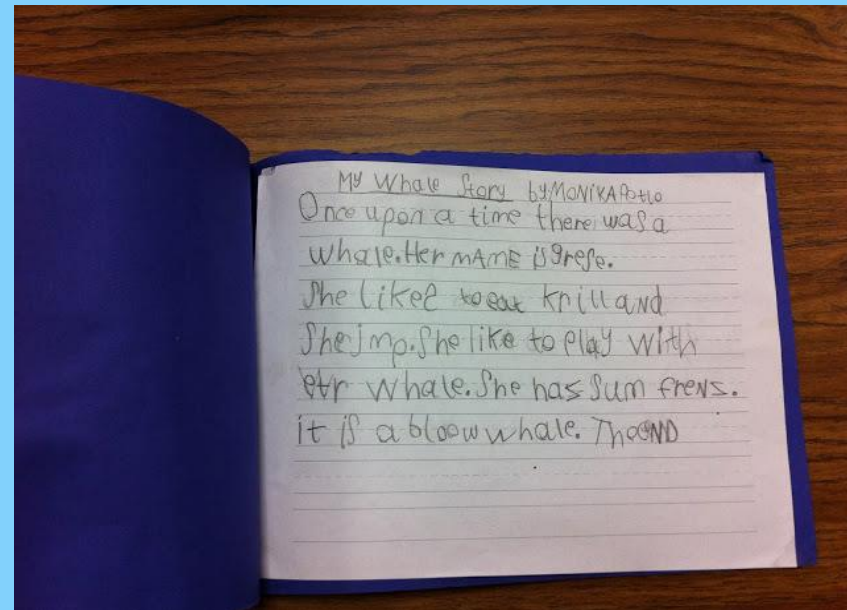 My Whale Story by MONIKA Potlo
Once upon a time there was a
whale. Her mAME is grese.
She likes to eat krill and
She jmp. She like to play with
etr whale. She has Sum frens.
it is a bloow whale. The eND